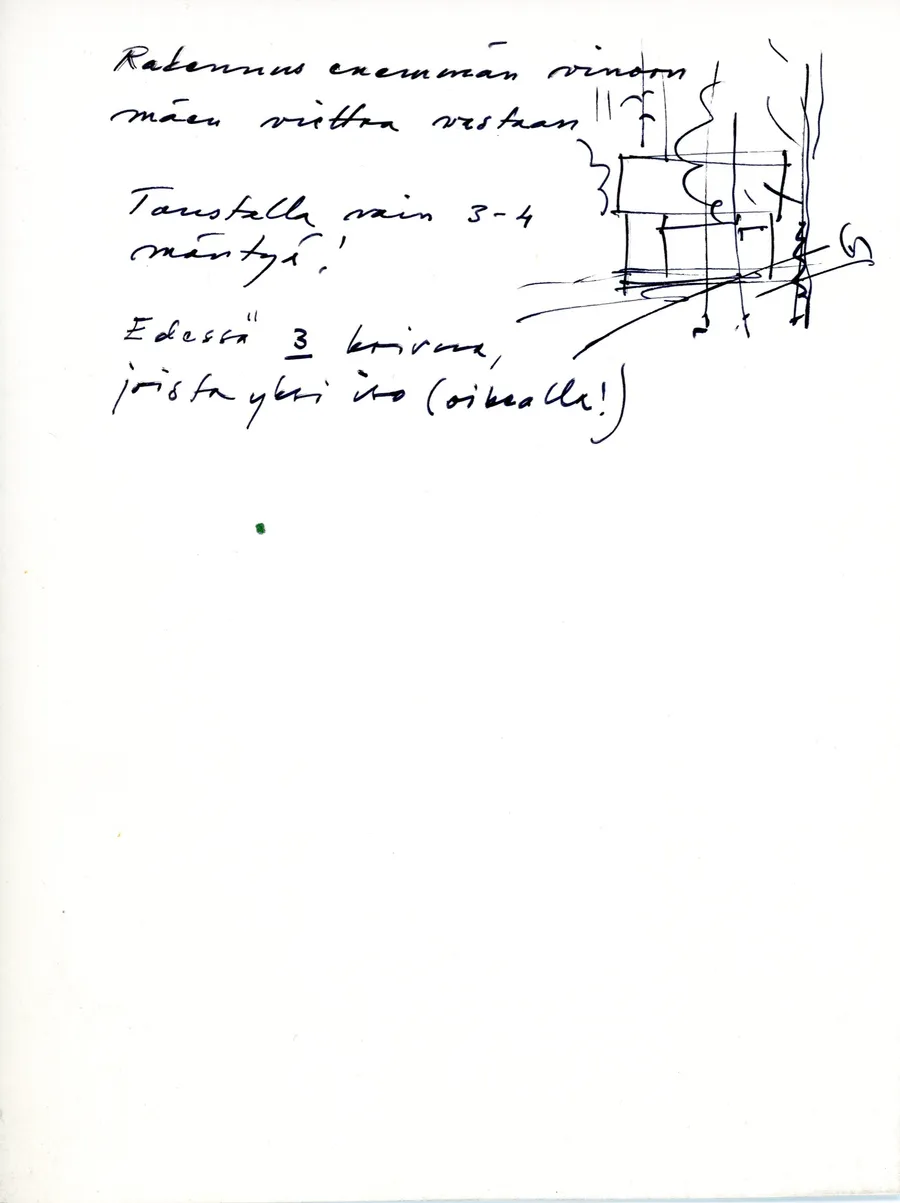 Rakennus enemmän vinoon
mäen viettoa vastaan
Taustalla vain 3-4
mäntyä!
Edessä 3 koivua,
joista yksi iso (oikealla!)